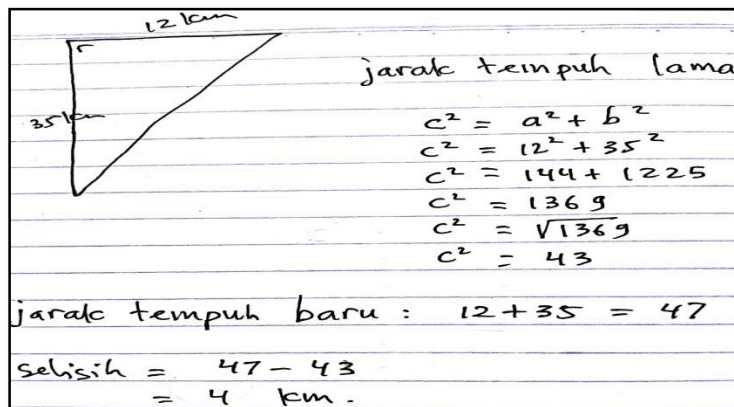 12 km
35 km
jarak tempuh lama
c² = a² + b²
c² = 12² + 35²
c² = 144 + 1225
c² = 1369
c² = √1369
c² = 43
jarak tempuh baru : 12 + 35 = 47
selisih = 47 - 43
= 4 km.